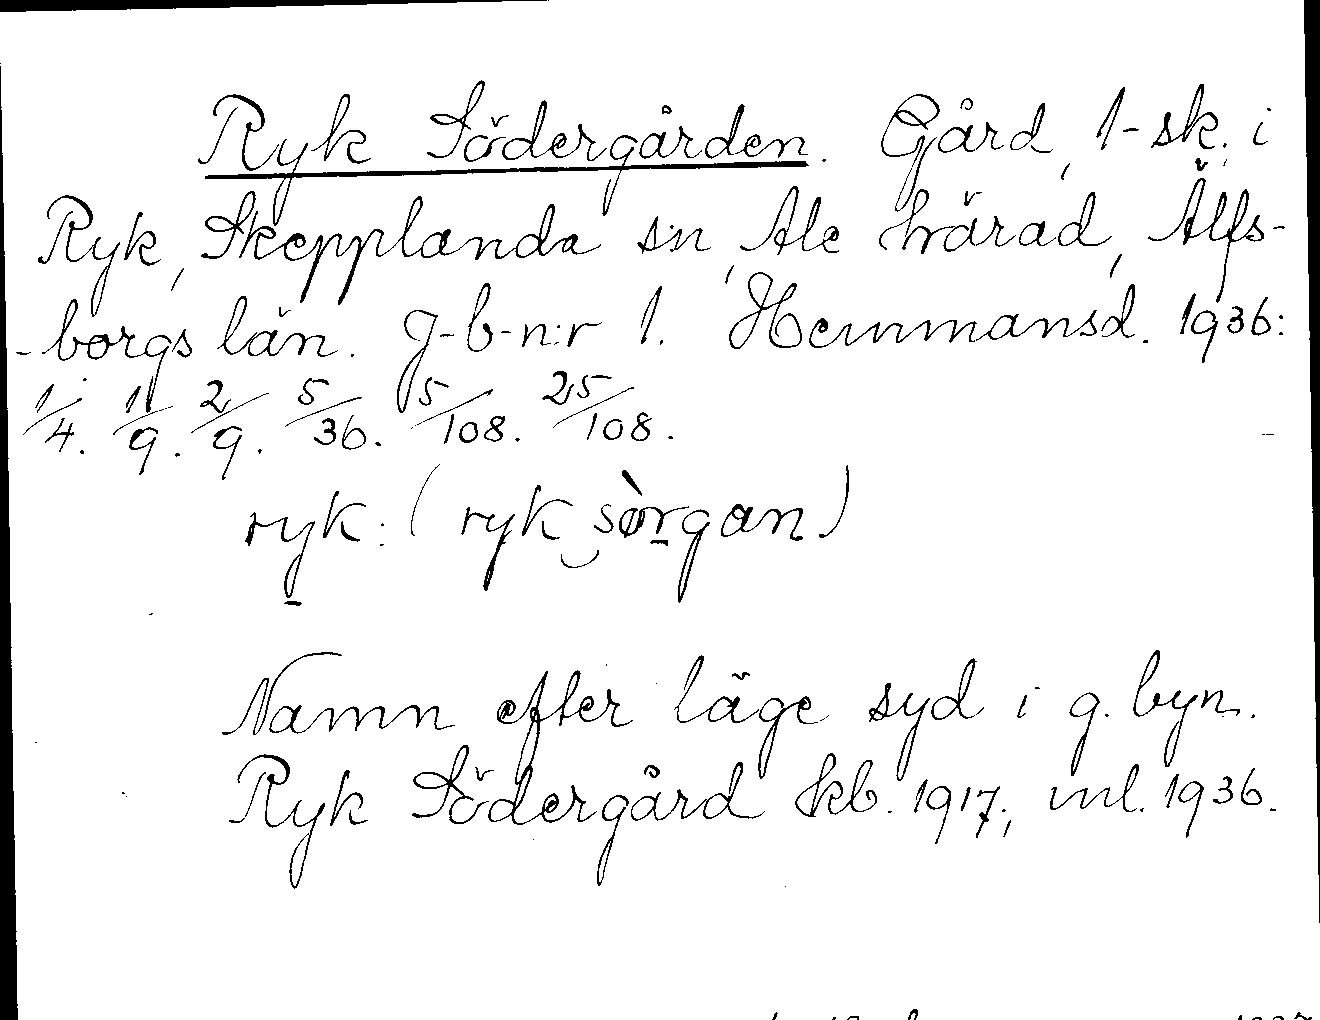 Ryk Södergården. Gård, 1-sk. i
Ryk, Skepplanda sn, Ale härad, Älfs-
-borgs län. J-b-n:r 1. Hemmansd. 1936:
1/4. 1/9. 2/9. 5/36. 5/108. 25/108.
ryk: (ryk sòrgan)
Namn efter läge syd i g. byn.
Ryk Södergård Skb. 1917, ml. 1936.